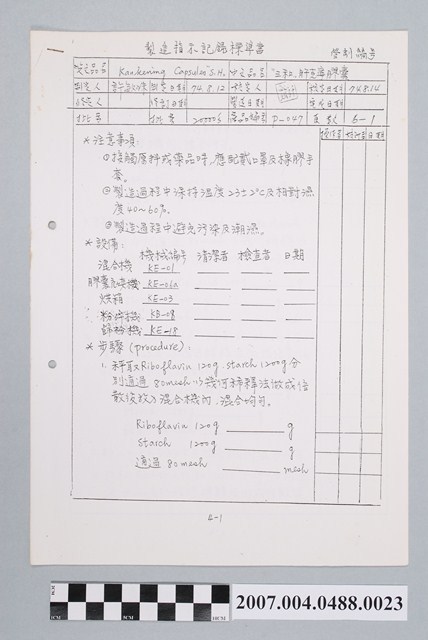 製造指示記錄標準書
管制編號
英文品名 Kankening Capsules"S.H. 中文品名 "三和"肝克寧膠囊
制定人 制定日期 74.8.12 核定人 核定日期 74.8.14
修定人 修訂日期 製造日期 完成日期
批號 批量 20000's 產品編號 P-047 頁次 6-1
操作者 核對者 日期
*注意事項:
①接觸原料或藥品時,應配戴口罩及橡膠手
套。
②製造過程中保持溫度23±2°C及相對濕
度40~60%。
③製造過程中避免污染及潮濕。
*設備:
機械編號 清潔者 檢查者 日期
混合機 KE-01
膠囊充填機 KE-06a
烘箱 KE-03
粉碎機 KE-08
篩粉機 KE-18
*步驟(procedure):
1. 秤取Riboflavin 120g. starch 1200g 分
別通過 80mesh以幾何稀釋法做成倍
散後放入混合機內,混合均勻。
Riboflavin 120g g
starch 1200g g
通過 80mesh mesh
6-1
2007.004.0488.0023